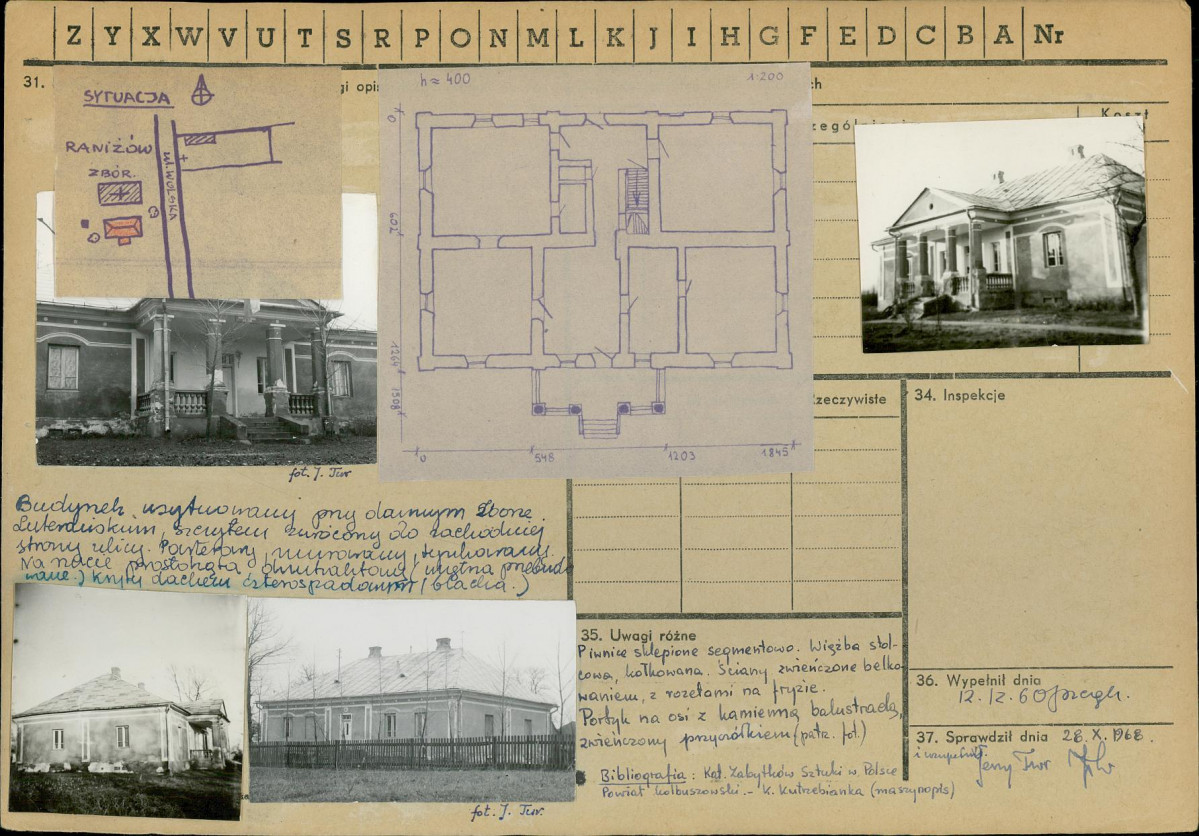 Z Y X W V U T S R P O N M L K J I H G F E D C B A Nr
31.
gi opis
ch
Koszt
SYTUACJA
RANIŻÓW
ZBÓR.
ul. WOLSKA
h = 400
1:200
0
602
1264
1508
0
548
1203
1845
fot. J. Tur
Budynek usytuowany przy dawnym Zborze
Luterańskim, szczytem zwrócony do zachodniej
strony ulicy. Parterowy, murowany, tynkowany.
Na rzucie prostokąta dwutraktowy (wnętrza przebudo
wane.) Kryty dachem czterospadowym (blacha.)
fot. J. Tur.
Rzeczywiste
34. Inspekcje
35. Uwagi różne
Piwnice sklepione segmentowo. Więźba stol-
cowa, kołkowana. Ściany zwieńczone belko
waniem, z rozetami na fryzie.
Portyk na osi z kamienną balustradą,
zwieńczony przyczółkiem (patrz fot.)
Bibliografia: Kat. Zabytków Sztuki w Polsce
Powiat kolbuszowski. - K. Kutrzebianka (maszynopis)
36. Wypełnił dnia
12. IX. 60
37. Sprawdził dnia 28. X. 1968.
i uzupełnił.
Jerzy Tur